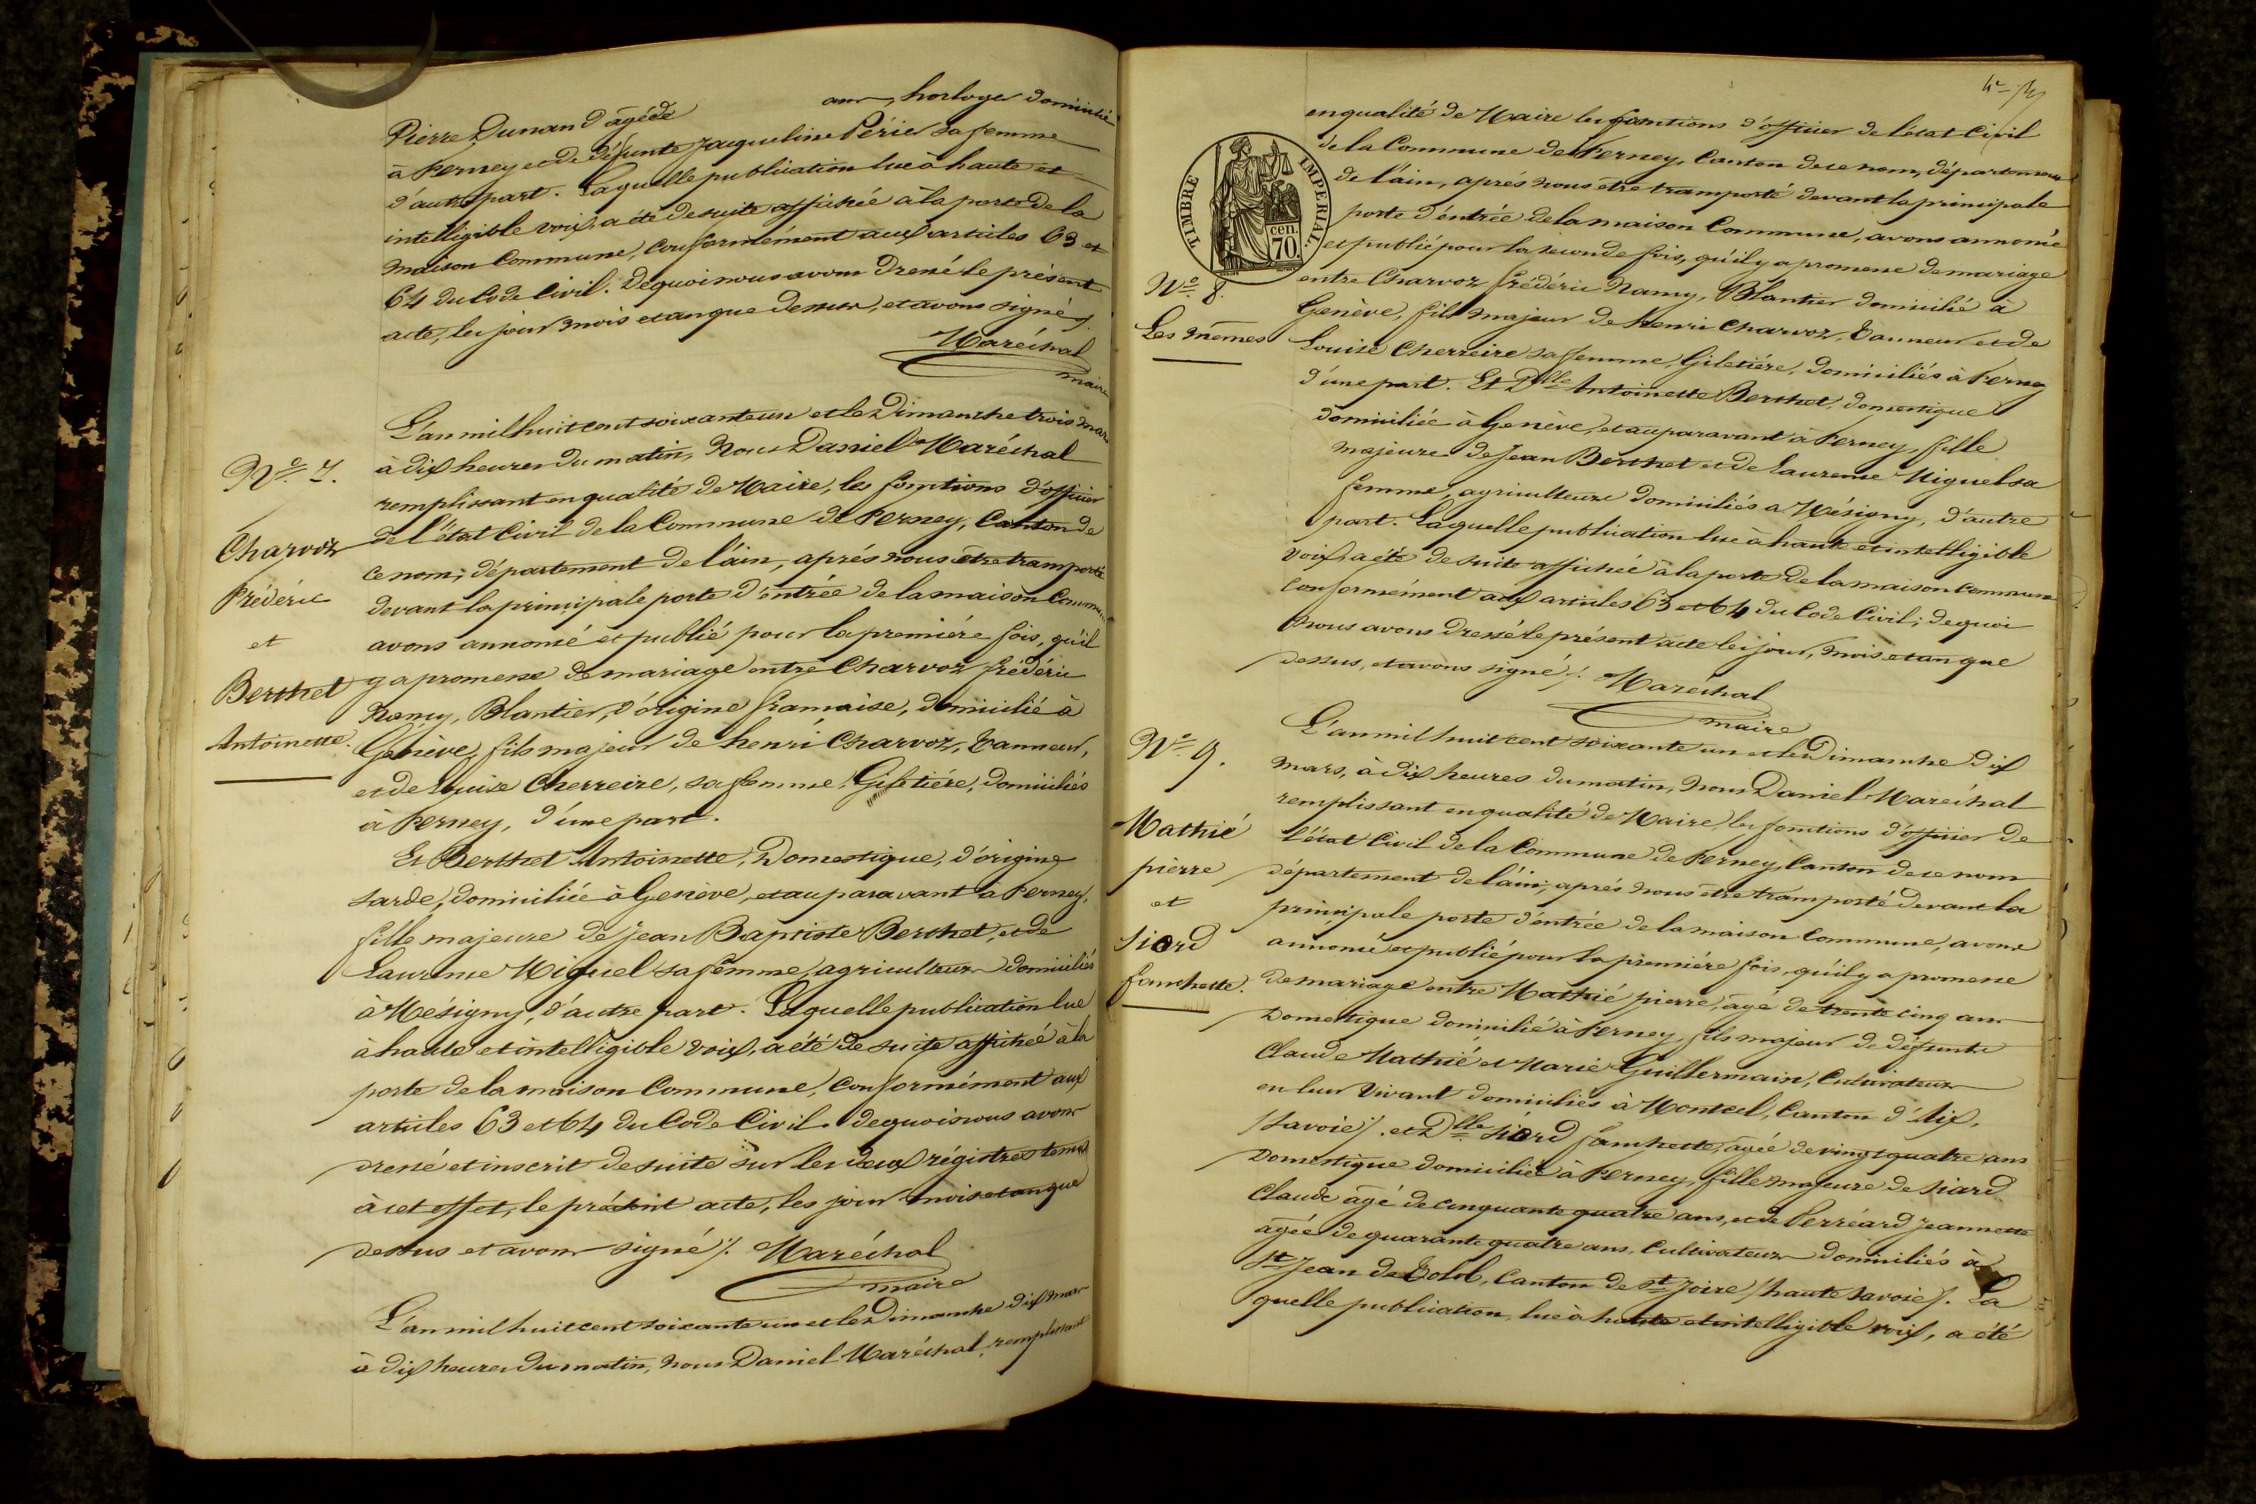 Pierre Dunand âgé de ans, horloger domicilié
à Ferney et de défunte Jacqueline Périer sa femme
d'autre part. Laquelle publication lue à haute et
intelligible voix, a été de suite affichée à la porte de la
maison Commune, Conformément aux articles 63 et
64 du Code Civil. De quoi nous avons dressé le présent
acte, les jour mois et an que dessus, et avons signé
Maréchal
maire
L'an mil huit cent soixante un et le Dimanche trois mars
à dix heures du matin, Nous Daniel Maréchal
remplissant en qualité de Maire, les fonctions d'officier
de l'état Civil de la Commune de Ferney, Canton de
ce nom, département de l'ain, après nous être transporté
devant la principale porte d'entrée de la maison Commune
avons annoncé et publié pour la première fois, qu'il
y a promesse de mariage entre Charvoz frédéric
Ramy, Blantier, d'origine française, domicilié à
Genève, fils majeur de henri Charvoz, Tanneur,
et de Louise Cherreire, sa femme, Giletière, domiciliés
à Ferney, d'une part.
Et Berthet Antoinette, Domestique, d'origine
Sarde, domiciliée à Genève, et auparavant à Ferney,
fille majeure de Jean Baptiste Berthet, et de
Laurence Miguel sa femme, agriculteurs domiciliés
à Mésigny, d'autre part. Laquelle publication lue
à haute et intelligible voix, a été de suite affichée à la
porte de la maison Commune, Conformément aux
articles 63 et 64 du Code Civil. de quoi nous avons
dressé et inscrit de suite sur les deux régistres tenus
à cet effet, le présent acte, les jour mois et an que
dessus et avons signé /. Maréchal
maire
L'an mil huit cent soixante un et le Dimanche dix mars
à dix heures du matin, nous Daniel Maréchal, remplissant
Nº 7.
Charvoz
Frédéric
et
Berthet
Antoinette.
4e
en qualité de Maire les fonctions d'officier de l'état Civil
de la Commune de Ferney, Canton de ce nom, département
de l'ain, après nous être transporté devant la principale
porte d'entrée de la maison Commune, avons annoncé
et publié pour la seconde fois, qu'il y a promesse de mariage
entre Charvoz frédéric Ramy, Blantier domicilié à
Genève, fils majeur de henri Charvoz, Tanneur et de
Louise Cherreire sa femme, Giletière, domiciliés à Ferney
d'une part. Et Dlle Antoinette Berthet, domestique
domiciliée à Genève, et auparavant à Ferney, fille
majeure de Jean Berthet et de Laurence Miguel sa
femme, agriculteurs domiciliés a Mésigny, d'autre
part. Laquelle publication lue à haute et intelligible
voix, a été de suite affichée à la porte de la maison Commune
Conformément aux articles 63 et 64 du Code Civil; de quoi
nous avons dressé le présent acte les jour, mois et an que
dessus, et avons signé /. Maréchal
maire
L'an mil huit cent soixante un et le Dimanche dix
mars, à dix heures du matin, nous Daniel Maréchal
remplissant en qualité de Maire, les fonctions d'officier de
l'état Civil de la Commune de Ferney, Canton de ce nom
département de l'ain, après nous être transporté devant la
principale porte d'entrée de la maison Commune, avons
annoncé et publié pour la première fois, qu'il y a promesse
de mariage entre Mathié pierre, âgé de trente cinq ans
Domestique domicilié à Ferney, fils majeur de défunts
Claude Mathié et Marie Guillermain, Cultivateurs
en leur vivant domiciliés à Montcel, Canton d'Aix,
(Savoie). et Dlle Siord fanchette, âgée de vingt quatre ans
Domestique domiciliée à Ferney, fille majeure de Siard
Claude âgé de cinquante quatre ans, et de Perréard Jeannette
âgée de quarante quatre ans, Cultivateurs domiciliés à
St Jean de Tolol, Canton de St Joire (haute savoie). La
quelle publication, lue à haute et intelligible voix, a été
TIMBRE IMPERIAL.
70 cen.
Nº 8.
Les mêmes
Nº 9.
Mathié
pierre
et
Siord
fanchette.